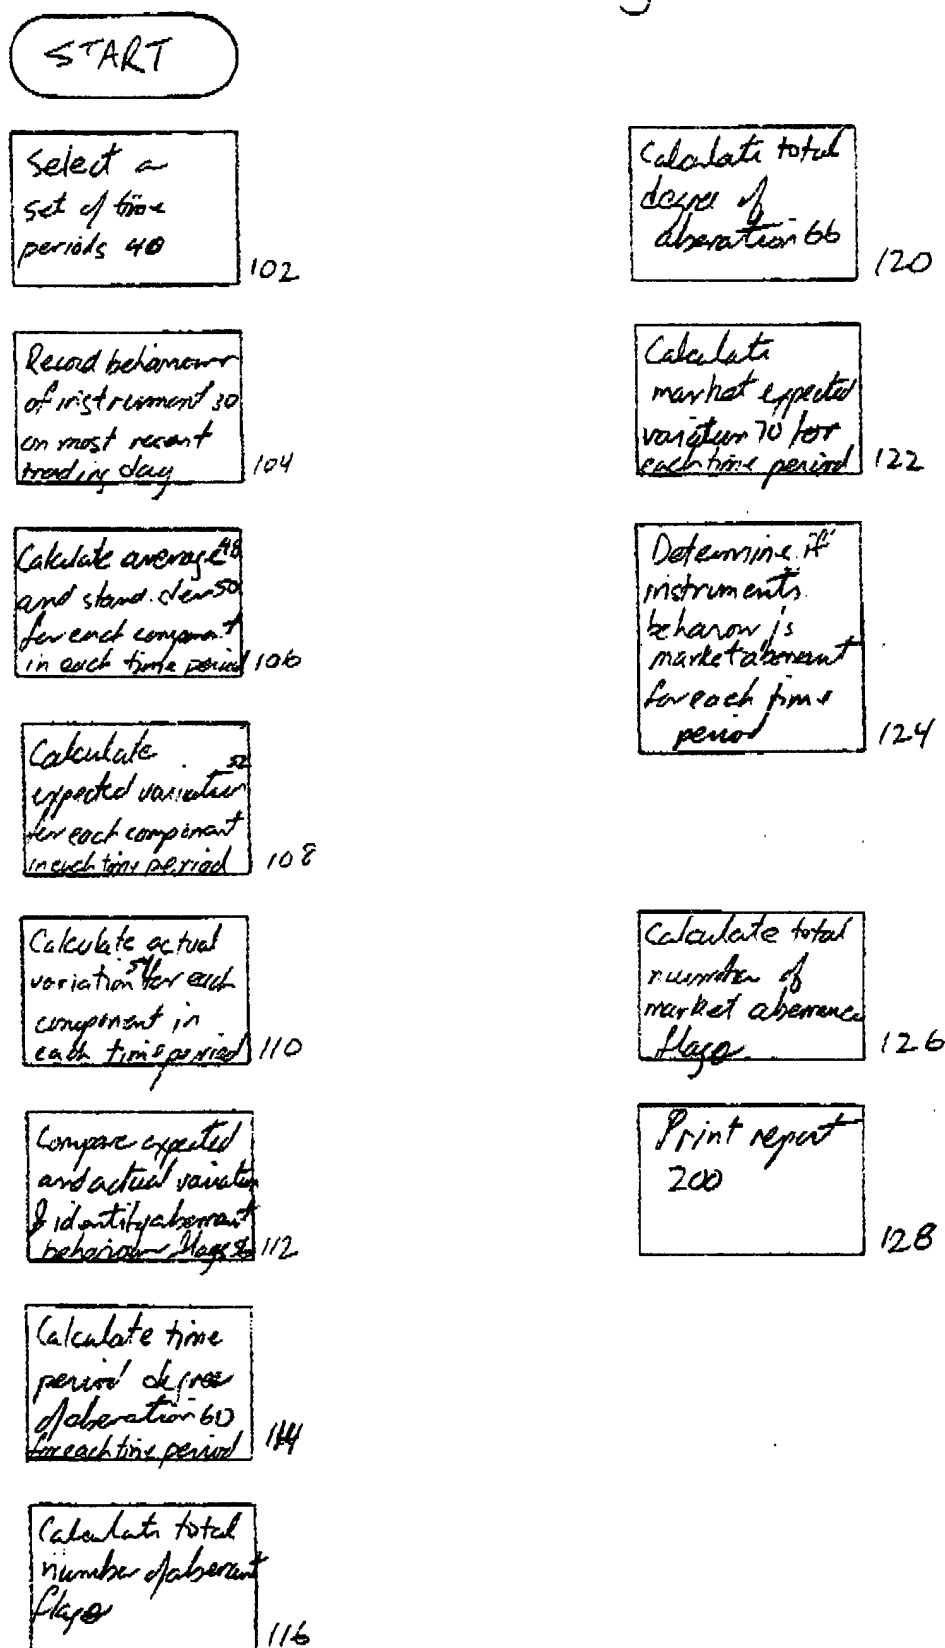 START
Select a
set of time
periods 40
102
Record behaviour
of instrument 30
on most recent
trading day
104
Calculate average 48
and stand. dev 50
for each component
in each time period
106
Calculate
52
expected variation
for each component
in each time period
108
Calculate actual
variation 54 for each
component in
each time period
110
Compare expected
and actual variation
& identify aberrant
behaviour flags 56
112
Calculate time
period degree
of aberation 60
for each time period
114
Calculate total
number of aberant
flags
116
Calculate total
degree of
aberation 66
120
Calculate
market expected
variation 70 for
each time period
122
Determine if
instruments
behaviour is
market aberrant
for each time
period
124
Calculate total
number of
market aberrance
flags
126
Print report
200
128